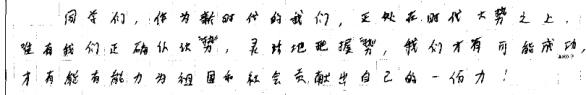 同学们，作为新时代的我们，正处在时代大势之上，
唯有我们正确认识“势”，灵活地把握“势”，我们才有可能成功，
才有能有能力为祖国和社会贡献出自己的一份力！